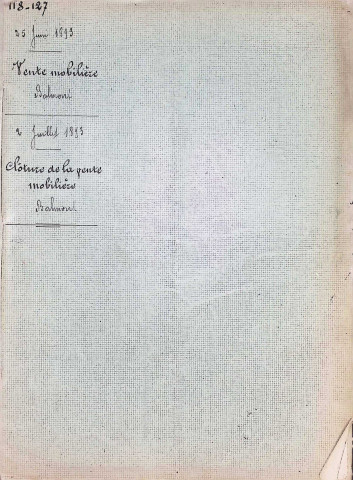 118-127
25 Juin 1893
Vente mobilière
Balmont
2 Juillet 1893
Clôture de la vente
mobilière
Balmont